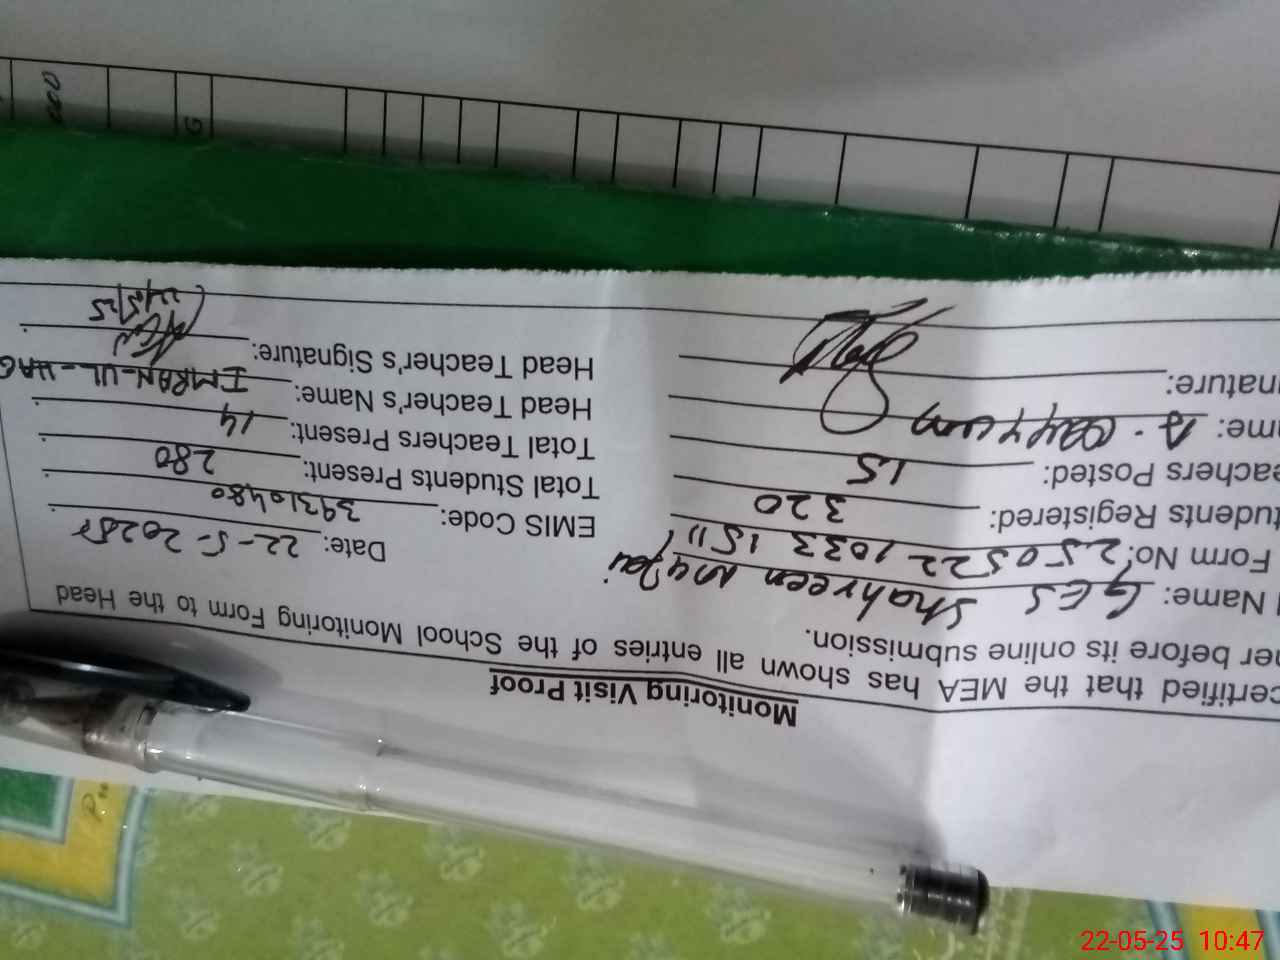 Monitoring Visit Proof
certified that the MEA has shown all entries of the School Monitoring Form to the Head
her before its online submission.
Name: GES Shahreen
Form No: Date: 22-5-2025
tudents Registered: 320 EMIS Code: 39310480
eachers Posted: 15 Total Students Present: 280
me: A. Qayyum Total Teachers Present: 14
nature: Head Teacher's Name: IMRAN-UL-HAQ
Head Teacher's Signature:
22/5/25
G
22-05-25 10:47